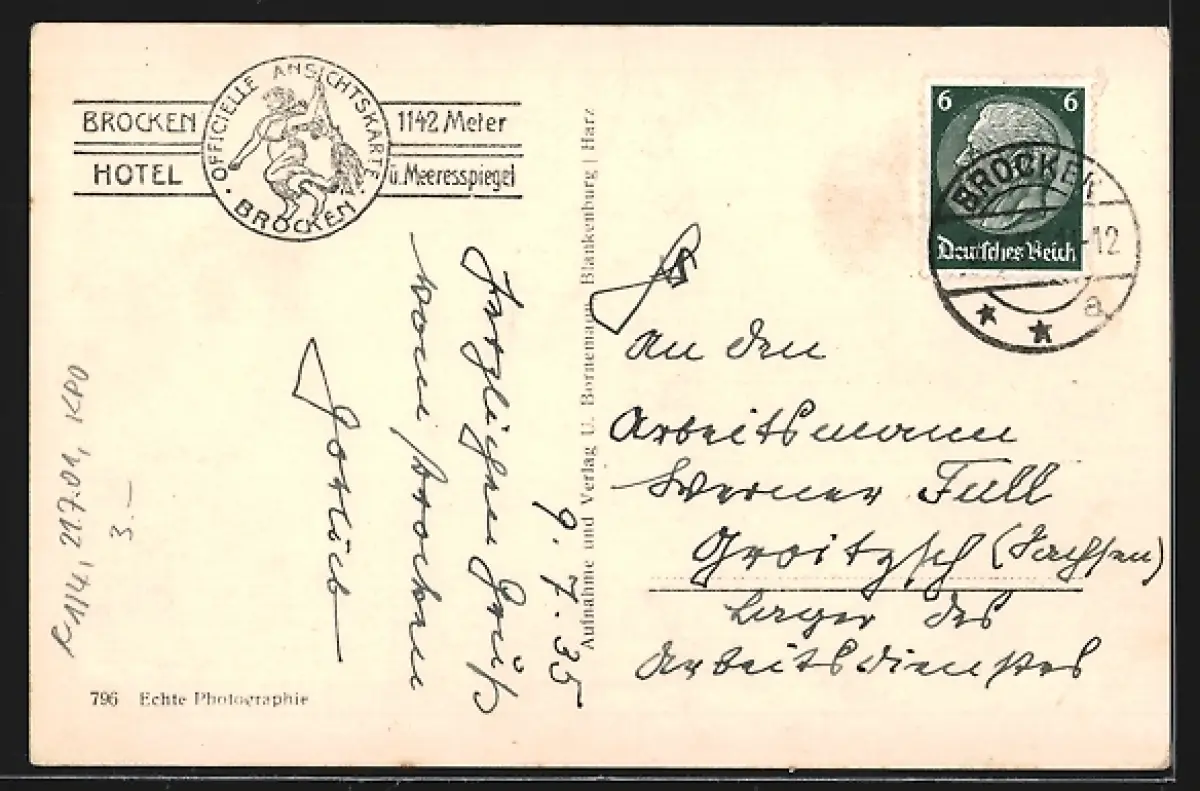 BROCKEN
HOTEL
OFFICIELLE ANSICHTSKARTE
BROCKEN
1142 Meter
ü. Meeresspiegel
9. 7. 35
Herzlichen Gruß
vom Brocken
796 Echte Photographie
Aufnahme und Verlag U. Bornemann, Blankenburg / Harz
6 6
Deutsches Reich
BROCKEN
-12
a
An den
Arbeitsmann
Werner Füll
Groitzsch (Sachsen)
Lager des
Arbeitsdienstes
R 114, 21.7.01, KPO
3.-